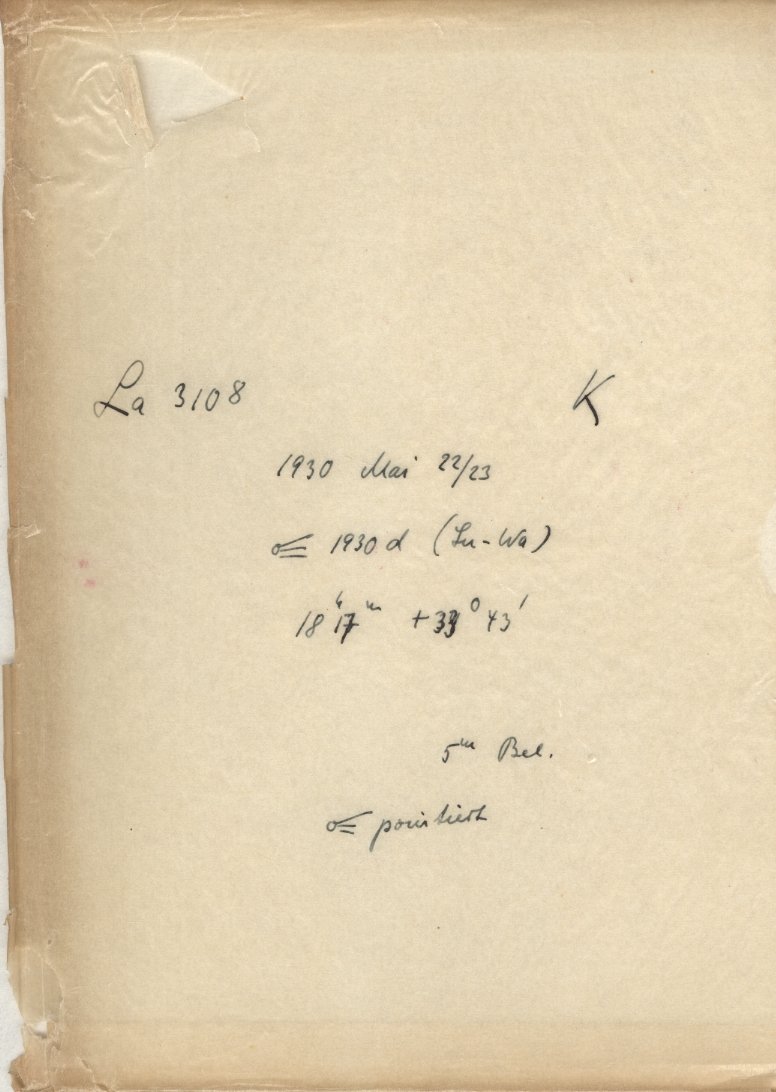 La 3108 K
1930 Mai 22/23
☄ 1930 d (Su-Wa)
18ʰ 17ᵐ +33° 43'
5ᵐ Bel.
☄ pointiert